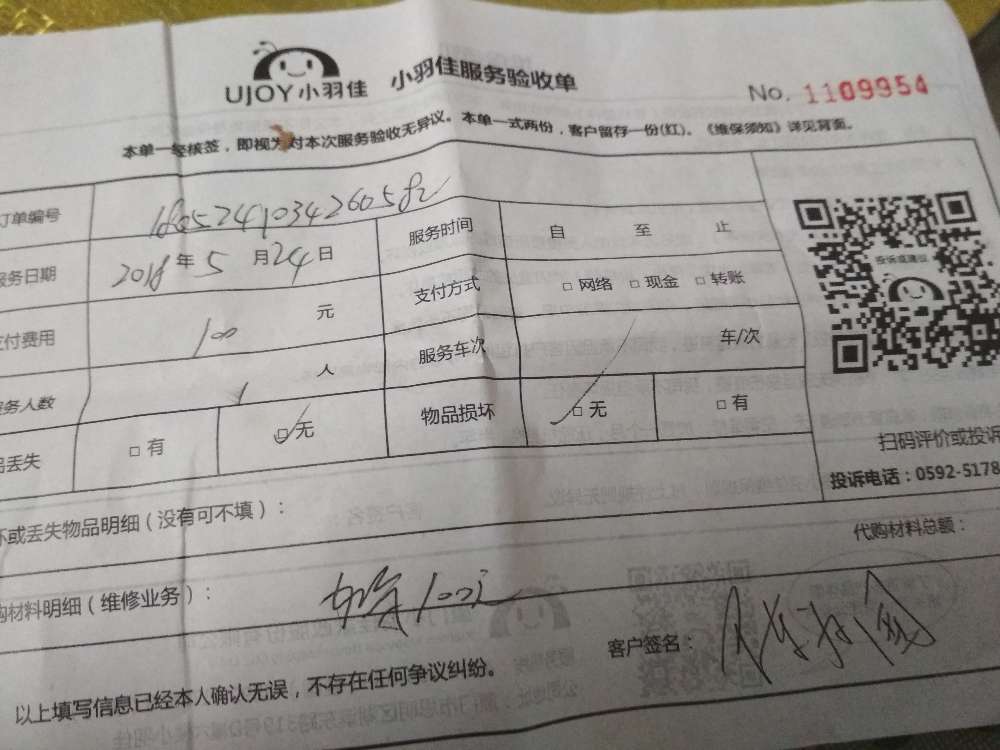 UJOY小羽佳 小羽佳服务验收单 No. 1109954
本单一经核签，即视为对本次服务验收无异议。本单一式两份，客户留存一份(红)。《维保须知》详见背面。
订单编号 服务时间 自 至 止
服务日期 2018 年 5 月 24 日 支付方式 □ 网络 □ 现金 □ 转账
支付费用 100 元 服务车次 车/次
服务人数 1 人 物品损坏 □ 无 □ 有
品丢失 □ 有 □ 无
投诉或建议
扫码评价或投诉
投诉电话：0592-5178
坏或丢失物品明细（没有可不填）：
代购材料总额：
购材料明细（维修业务）： 100元
客户签名：
以上填写信息已经本人确认无误，不存在任何争议纠纷。